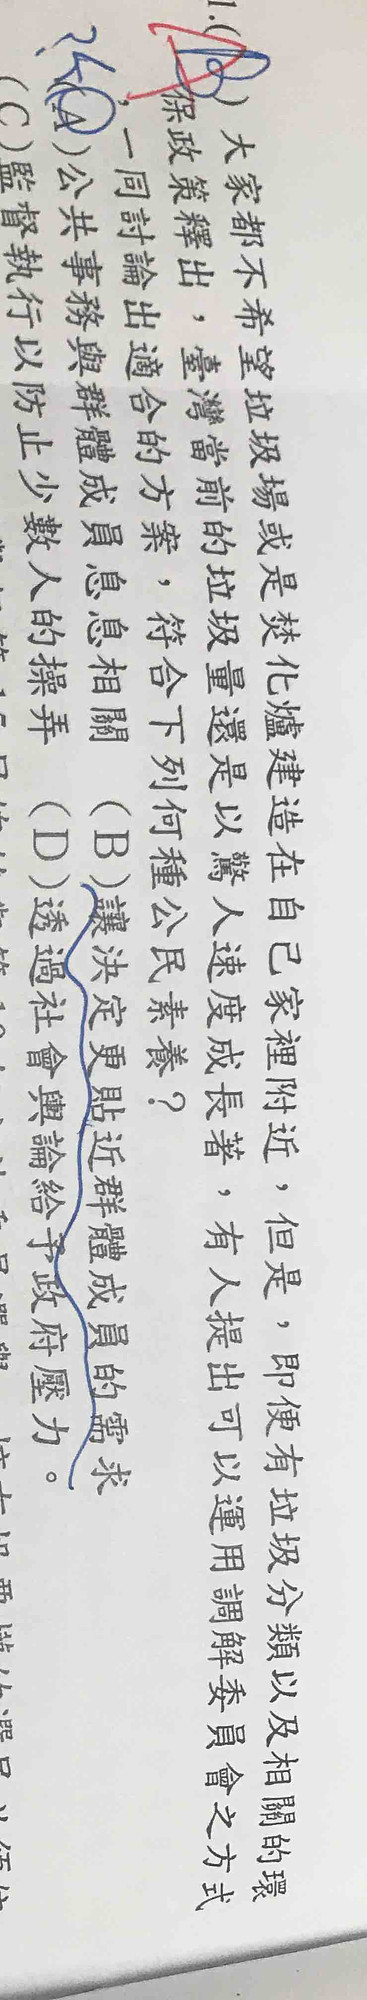 1.(B)大家都不希望垃圾場或是焚化爐建造在自己家裡附近，但是，即便有垃圾分類以及相關的環
保政策釋出，臺灣當前的垃圾量還是以驚人速度成長著，有人提出可以運用調解委員會之方式
，一同討論出適合的方案，符合下列何種公民素養？
(A)公共事務與群體成員息息相關 (B)讓決定更貼近群體成員的需求
(C)監督執行以防止少數人的操弄 (D)透過社會輿論給予政府壓力。